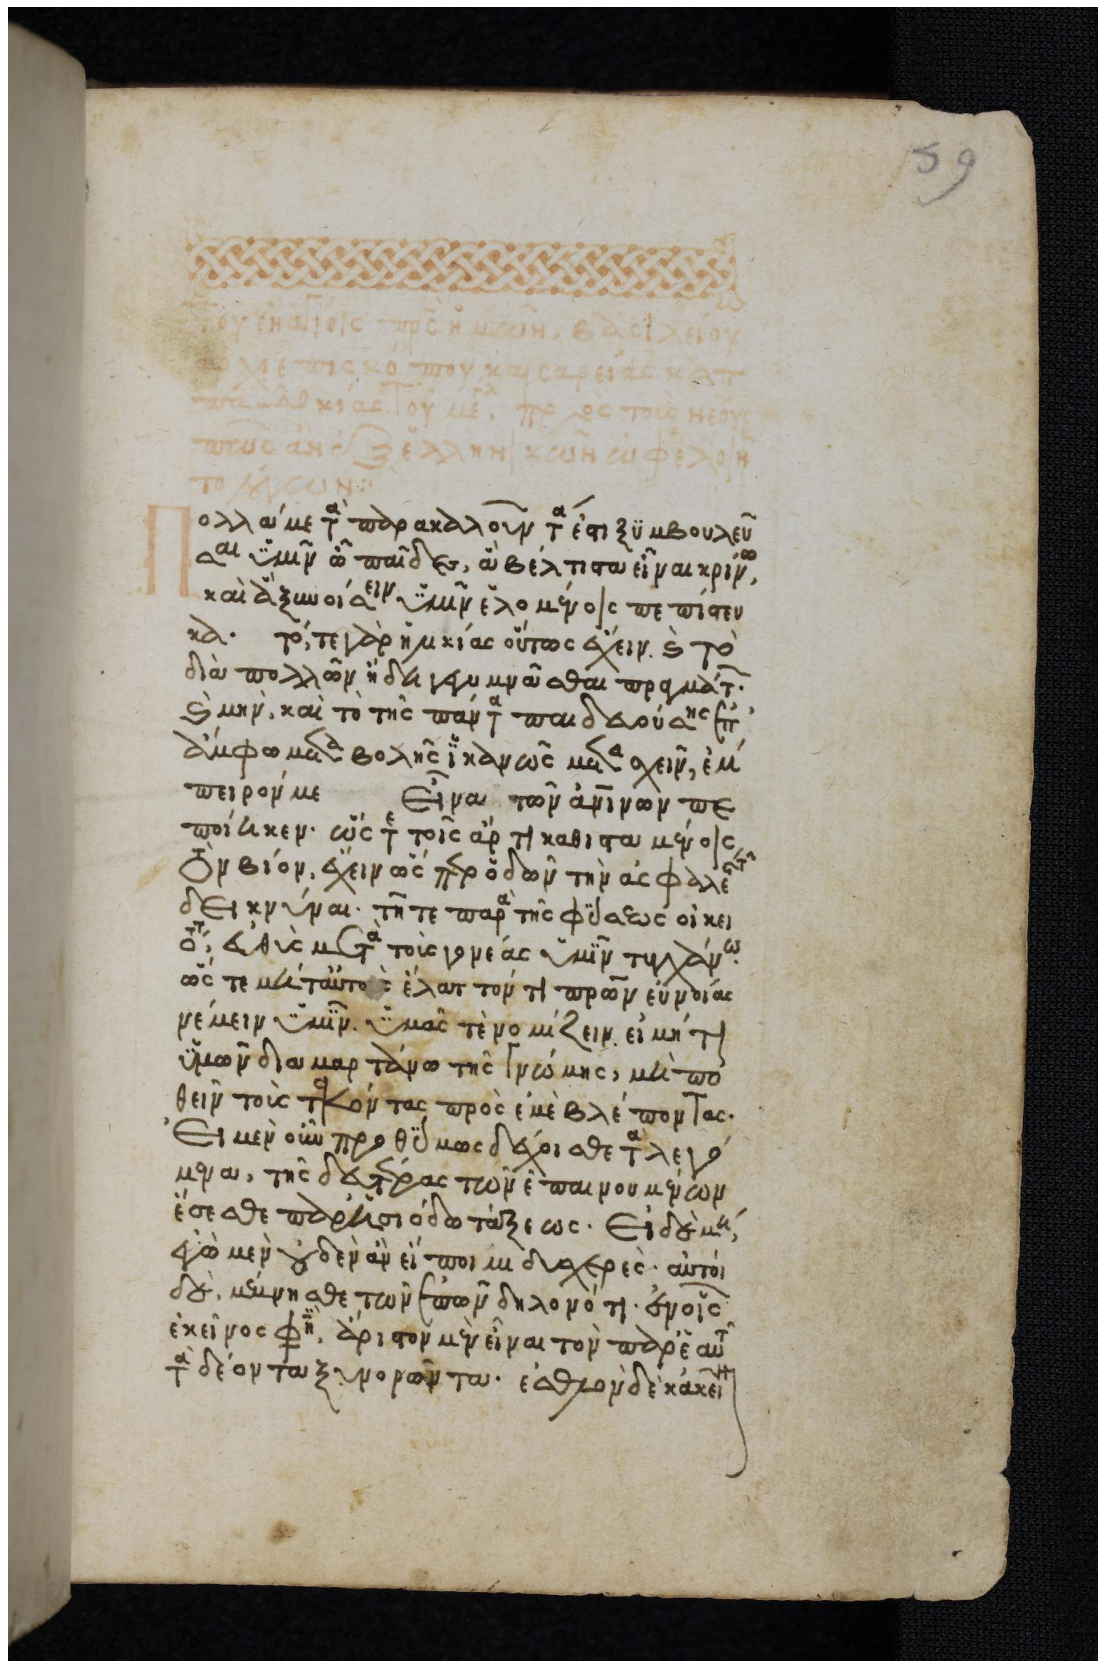 59
τοῦ ἐν ἁγίοις πρς ἡμῶν, βασιλείου
ἀρχιεπισκόπου καισαρείας καπ
παδοκίας τοῦ με, πρὸς τοὺς νέους
πῶς ἂν ἐξ ἑλληνικῶν ὠφελοῖν
το λόγων:
Πολλά με τὰ παρακαλοῦντα ἐστι ξυμβουλεῦ
σαι ὑμῖν ὦ παῖδες, ἃ βέλτιστα εἶναι κρίνω,
καὶ ἃ ξυνοίσειν ὑμῖν ἑλομένοις πεπίστευ
κα. τό, τε γὰρ ἡλικίας οὕτως ἔχειν. καὶ τὸ
διὰ πολλῶν ἤδη γεγυμνάσθαι πραγμάτ.
καὶ μὴν, καὶ τὸ τῆς πάντα παιδευούσης ἐπ
ἄμφω μεταβολῆς ἱκανῶς μετασχεῖν, ἐμ
πειρόν με εἶναι τῶν ἀνίνων πε
ποίηκεν. ὥς τε τοῖς ἄρτι καθισταμένοις
τὸν βίον, ἔχειν ὥς πρ ὁδῶν τὴν ἀσφαλε
δεικνύναι. τῆ τε παρὰ τῆς φύσεως οἰκει
ότ, εὐθὺς μετὰ τοὺς γονέας ὑμῖν τυγχάνω.
ὥς τε μήτ αὐτὸς ἔλαττόν τι πρῶν εὐνοίας
νέμειν ὑμῖν. ὑμᾶς τὲ νομίζειν. εἰ μή τι
ὑμῶν διαμαρτάνω τῆς γνώμης, μὴ πο
θεῖν τοὺς τεκόντας πρὸς ἐμὲ βλέποντας.
Εἰ μὲν οὖν προθύμως δέχοισθε τὰ λεγό
μενα, τῆς δευτέρας τῶν ἐπαινουμένων
ἔσεσθε παρ ἡσιόδω τάξεως. Εἰ δὲ μή,
ἐγὼ μὲν οὐδὲν ἂν εἴποιμι δυσχερὲς. αὐτοὶ
δὲ, μέμνησθε τῶν ἐπῶν δηλονότι. ἐν οἷς
ἐκεῖνος φησὶν, ἄριστον μὲν εἶναι τὸν παρ ἑαυτ
τὰ δέοντα ξυνορῶντα. ἐσθλὸν δὲ κἀκεῖν